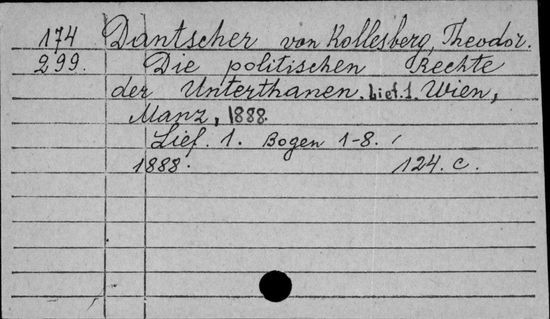 174 Dantscher von Kollesberg, Theodor.
299. Die politischen Rechte
der Unterthanen. Lief. 1. Wien,
Manz, 1888
Lief. 1. Bogen 1-8.
1888. 124. c.